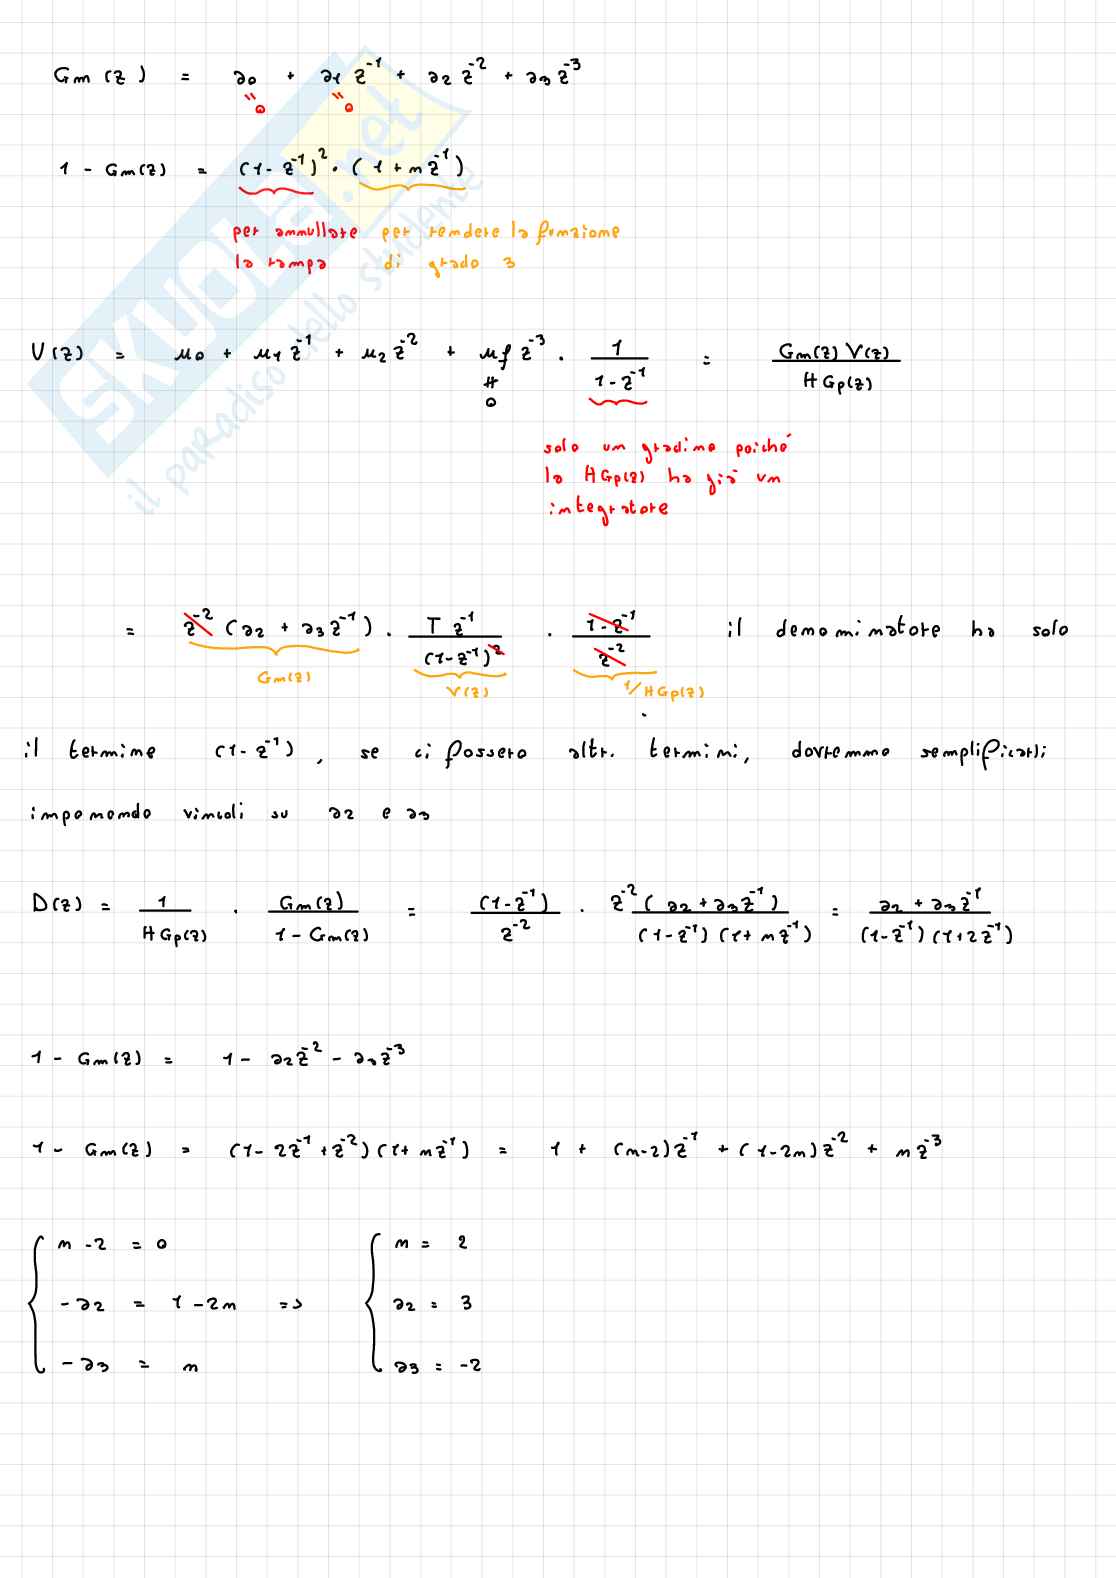 Gm(z) = a0 + a1 z^-1 + a2 z^-2 + a3 z^-3
" "
0 0
1 - Gm(z) = (1-z^-1)^2 · (1 + mz^-1)
per annullare per rendere la funzione
la rampa di grado 3
U(z) = μ0 + μ1 z^-1 + μ2 z^-2 + μf z^-3 · 1/(1-z^-1) = Gm(z) V(z)/HGp(z)
≠
0
solo un gradino poiché
la HGp(z) ha già un
integratore
= z^-2 (a2 + a3 z^-1) · T z^-1/(1-z^-1)^2 · (1-z^-1)/z^-2 il denominatore ha solo
Gm(z) V(z) 1/HGp(z)
il termine (1-z^-1), se ci fossero altri termini, dovremmo semplificarli
imponendo vincoli su a2 e a3
D(z) = 1/HGp(z) · Gm(z)/(1 - Gm(z)) = (1-z^-1)/z^-2 · z^-2 (a2 + a3 z^-1)/((1-z^-1)(1+mz^-1)) = (a2 + a3 z^-1)/((1-z^-1)(1+2z^-1))
1 - Gm(z) = 1 - a2 z^-2 - a3 z^-3
1 - Gm(z) = (1-2z^-1+z^-2)(1+mz^-1) = 1 + (m-2)z^-1 + (1-2m)z^-2 + mz^-3
m-2 = 0 m = 2
-a2 = 1-2m => a2 = 3
-a3 = m a3 = -2
SKUOLA.net
il paradiso dello studente